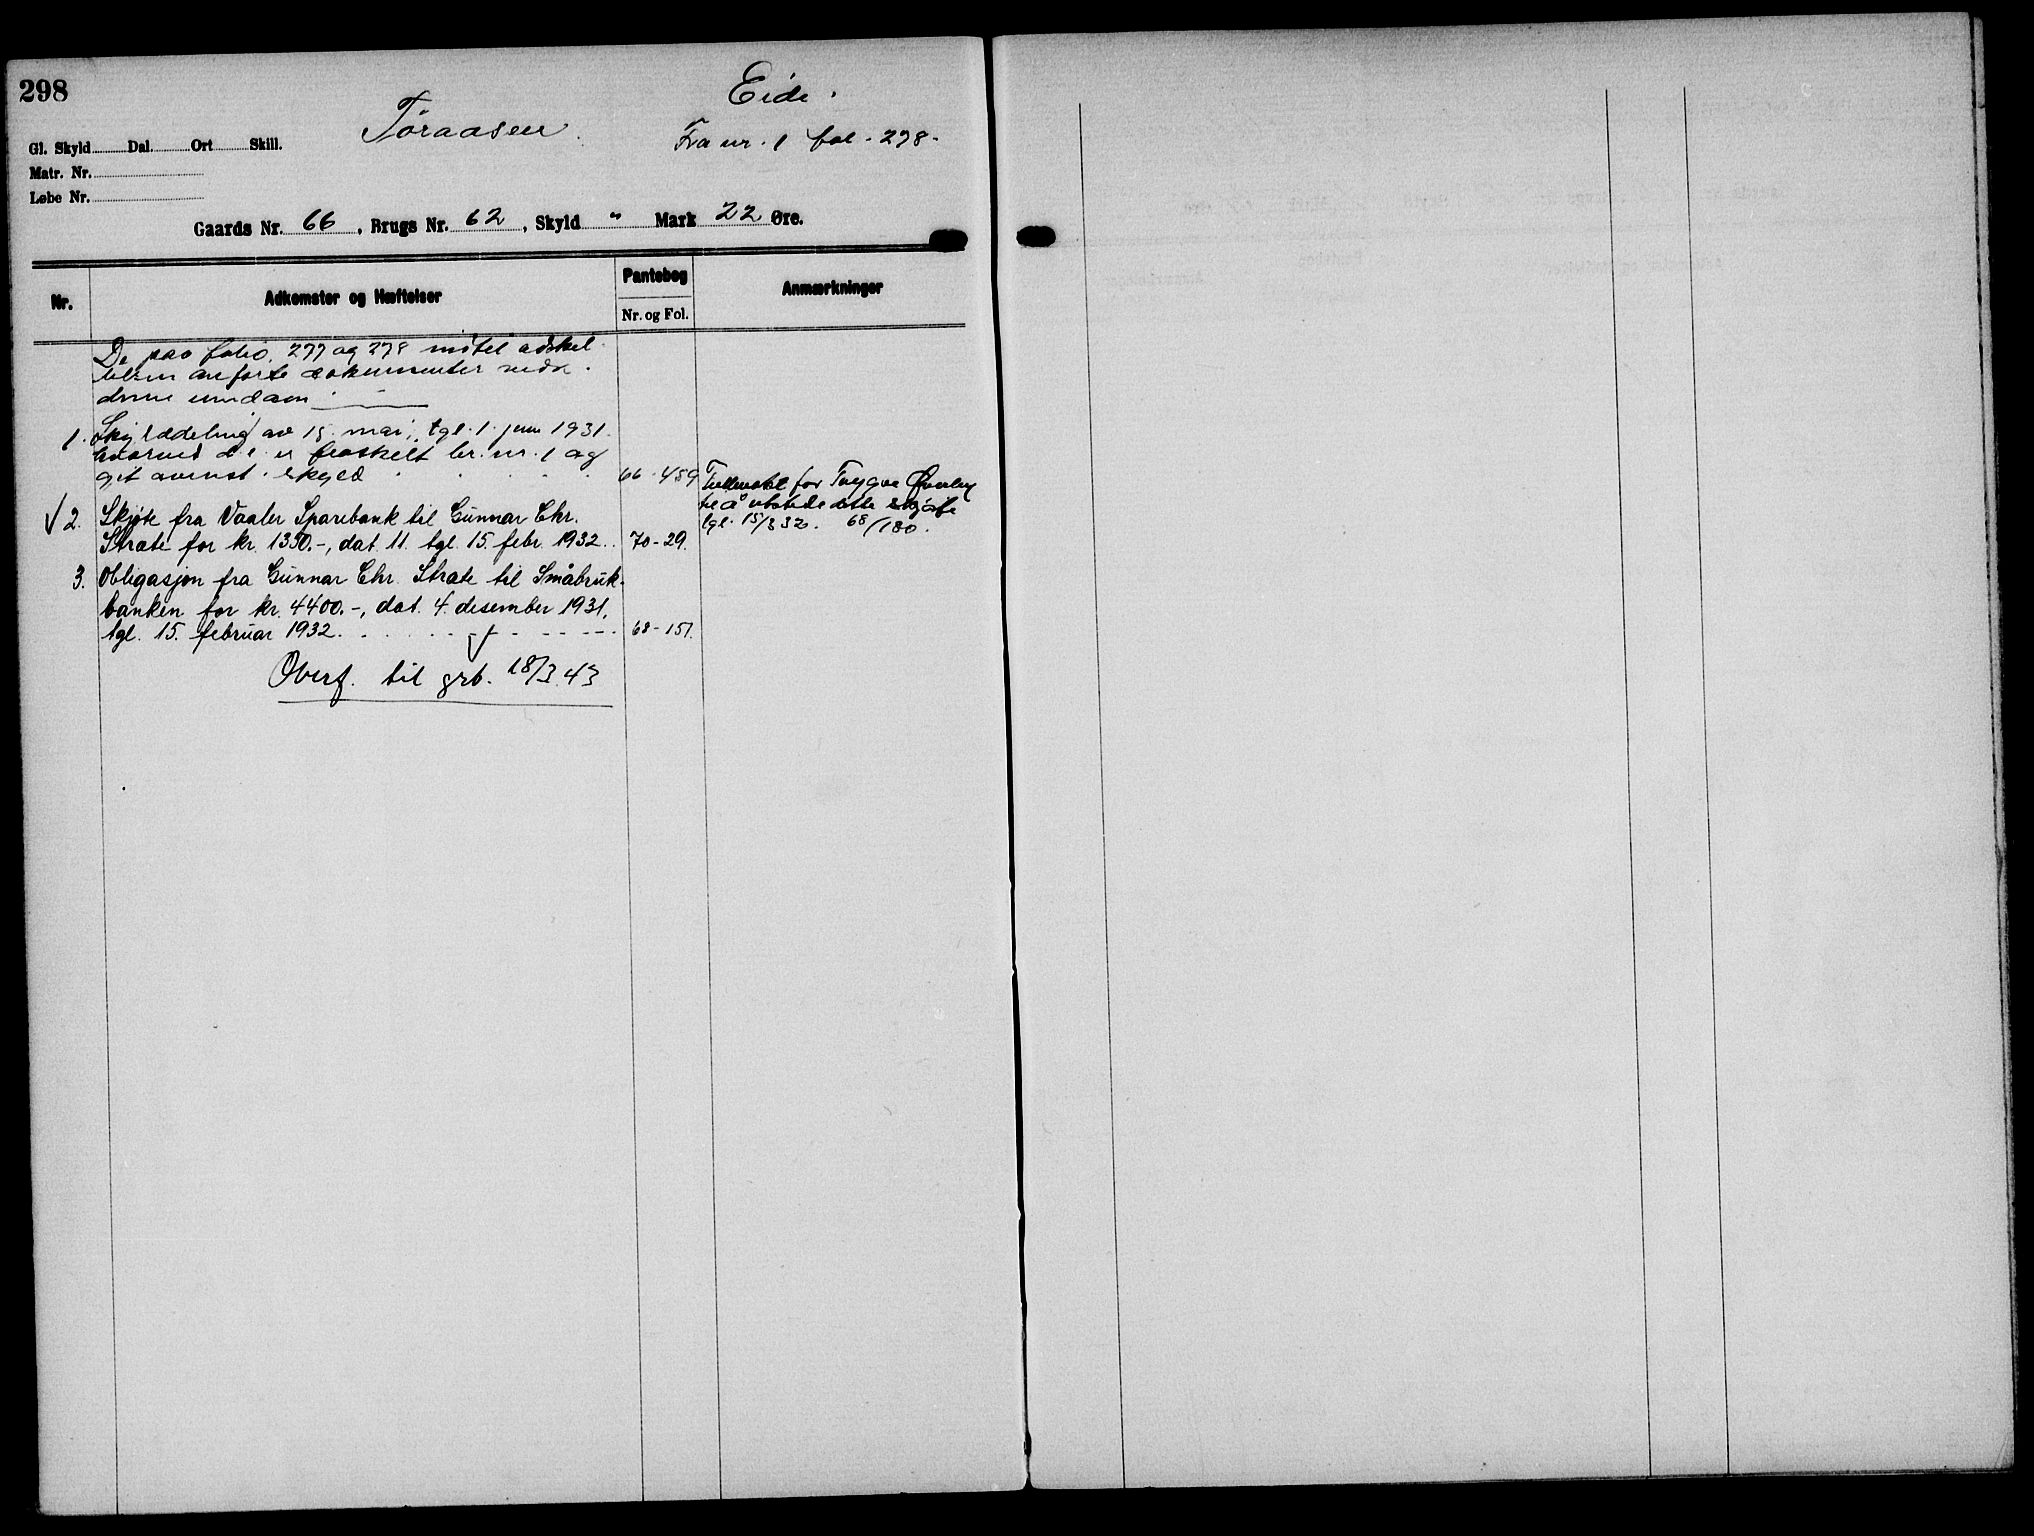 298
Eide.
Tøraasen.
Fra nr. 1 fol. 278.
Gl. Skyld Dal. Ort Skill.
Matr. Nr.
Løbe Nr.
Gaards Nr. 66, Brugs Nr. 62, Skyld " Mark 22 Øre.
Nr.
Adkomster og Hæftelser
Pantebog
Nr. og Fol.
Anmærkninger
De paa folio 277 og 278 indtil adskil-
lelsen anførte dokumenter vedk.
denne eiendom
1. Skylddeling av 15. mai, tgl. 1. juni 1931.
hvorved d. e. er fraskilt br. nr. 1 og
git avenst. skyld 66-459
Fullmakt for Trygve
til å utstede dette skjøte
tgl. 15/3 32. 68/180.
√ 2. Skjøte fra Vaaler Sparebank til Gunnar Chr.
Stræte for kr. 1350.-, dat. 11. tgl. 15. febr. 1932. 70-29.
3. Obligasjon fra Gunnar Chr. Stræte til Småbruk-
banken for kr. 4400.-, dat. 4. desember 1931,
tgl. 15. februar 1932. 68-151.
Overf. til grb. 18/3.43